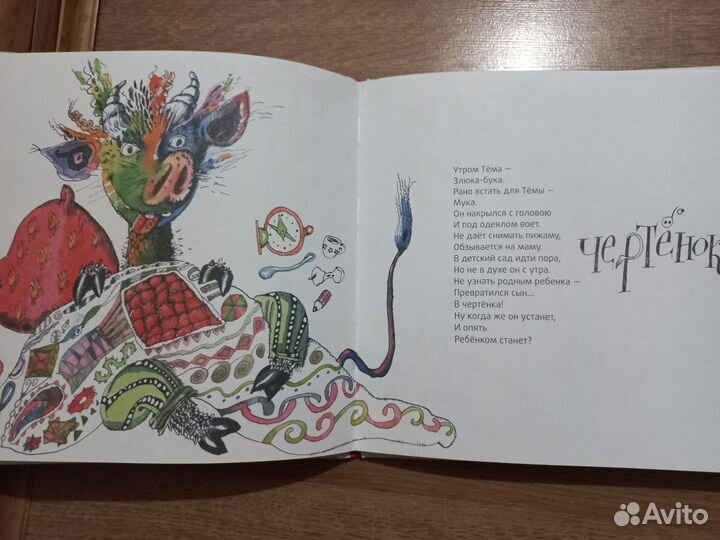 Утром Тёма –
Злюка-бука.
Рано встать для Тёмы –
Мука.
Он накрылся с головою
И под одеялом воет.
Не даёт снимать пижаму,
Обзывается на маму.
В детский сад идти пора,
Но не в духе он с утра.
Не узнать родным ребенка –
Превратился сын...
В чертёнка!
Ну когда же он устанет,
И опять
Ребёнком станет?
ЧЕРТЁНОК
Avito